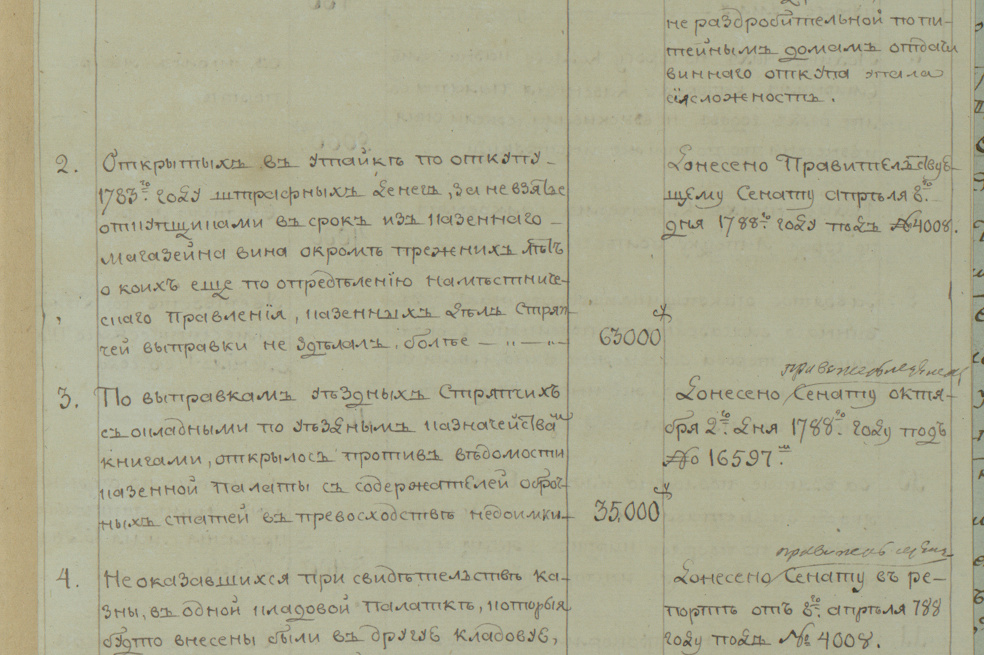 не раздробительной по пи-
тейнымъ домамъ отдачи
виннаго откупа упала
сія сложность.
2. Открытыхъ въ утайкѣ по откупу
1783го году штрафныхъ денегъ, за не взятіе
откупщиками въ срокъ изъ казеннаго
магазейна вина окромѣ прежнихъ лѣтъ
о коихъ еще по опредѣленію намѣстниче-
скаго правленія, казенныхъ дѣлъ Стряп-
чей выправки не здѣлалъ, болѣе — „ — „ — 63000
Донесено Правителствую-
щему Сенату апрѣля 8го
дня 1788го году подъ № 4008.
3. По выправкамъ уѣздныхъ Стряпчихъ
съ окладными по уѣзднымъ казначействамъ
книгами, открылось противъ вѣдомости
казенной палаты съ содержателей оброч-
ныхъ статей въ превосходствѣ недоимки 35,000
правительствующему
Донесено Сенату октя-
бря 2го дня 1788го году подъ
№ 16597м
4. Не оказавшихся при свидѣтелствѣ ка-
зны, въ одной кладовой палаткѣ, которыя
будто внесены были въ другую кладовую,
Донесено Сенату въ ре-
портѣ отъ 8го апрѣля 788
году подъ № 4008.